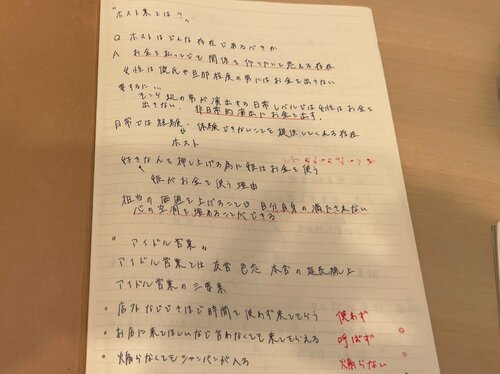 "ホスト業とは?"
Q ホストはどんな存在であるべきか
A お金を払ってでも関係を作りたいと思える存在
女性は彼氏や旦那程度の男にはお金を出さない
要するに…
そこら辺の男が演出する日常レベルでは女性はお金を
出さない。非日常的演出にお金を出す。
日常では経験、体験できないことを提供してくれる存在
ホスト
好きなんて押し上げる為に姫はお金を使う
姫がお金を使う理由
担当の価値を上げることで自分自身の満たされない
心の空洞を埋めることができる
"アイドル営業"
アイドル営業とは友営 色恋 本営の延長線上
アイドル営業の三要素
・店外などさほど時間を使わず来てもらう 使わず
・お店に来てほしいなど言わなくても来てもらえる 呼ばず
・煽らなくてもシャンパンが入る 煽らない